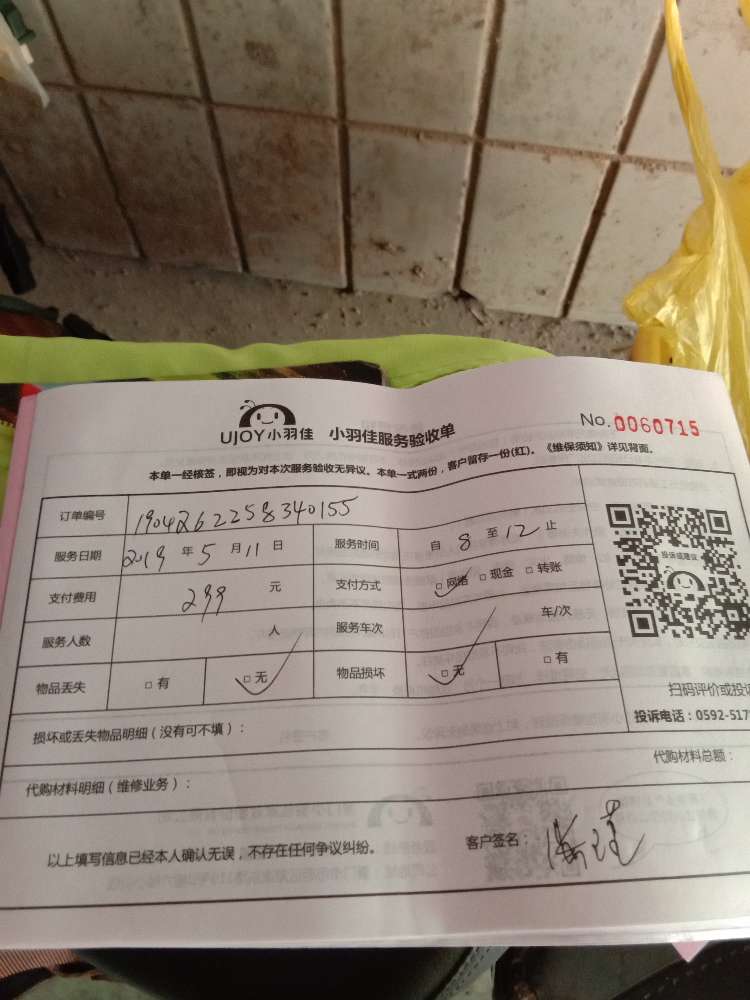 UJOY小羽佳 小羽佳服务验收单 No.0060715
本单一经核签，即视为对本次服务验收无异议。本单一式两份，客户留存一份(红)。《维保须知》详见背面。
订单编号 19042622258340155
服务日期 2019 年 5 月 11 日 服务时间 自 8 至 12 止
支付费用 299 元 支付方式 □网络 □现金 □转账
服务人数 人 服务车次 车/次
物品丢失 □有 □无 物品损坏 □无 □有
投诉或建议
扫码评价或投诉
投诉电话：0592-517
损坏或丢失物品明细（没有可不填）：
代购材料总额：
代购材料明细（维修业务）：
以上填写信息已经本人确认无误，不存在任何争议纠纷。 客户签名：